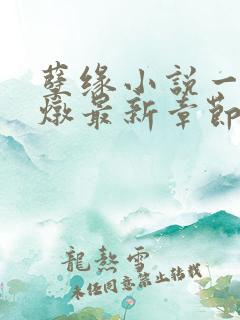 孽缘小说一
燉最新章節
龍熱雪
未经同意禁止转载